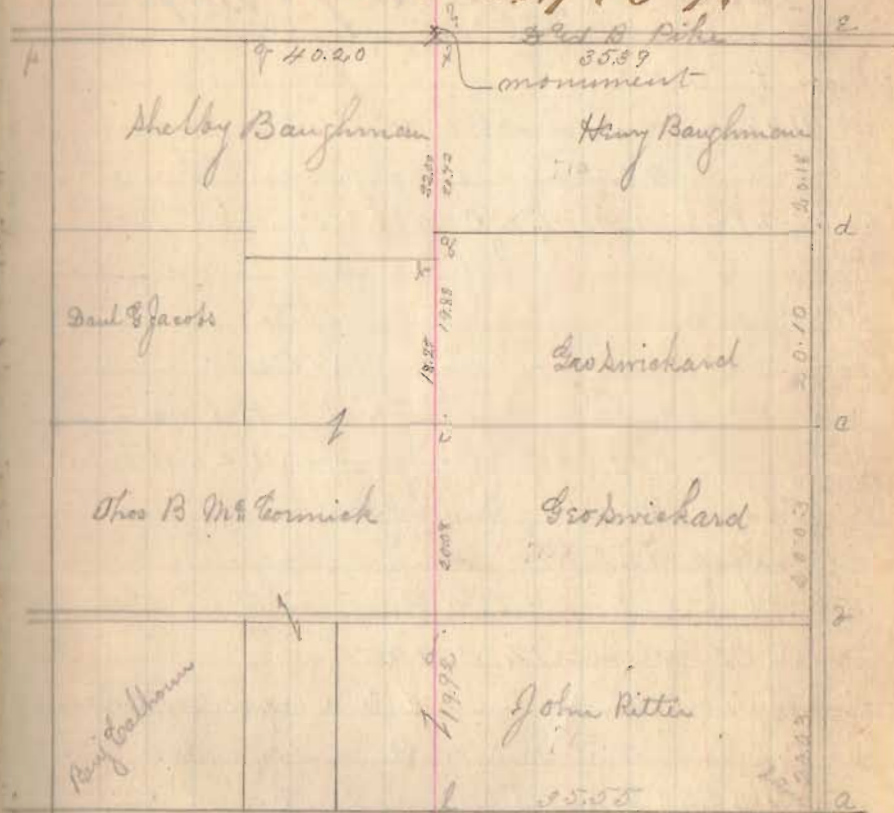 40.20
35.39
monument
Shelby Baughman
Henry Baughman
20.18
d
Danl E Jacobs
19.83
18.27
Geo Swickard
20.10
c
Thos B McCormick
20.08
Geo Swickard
20.03
Benj Calhoun
19.92
John Ritter
35.55
a